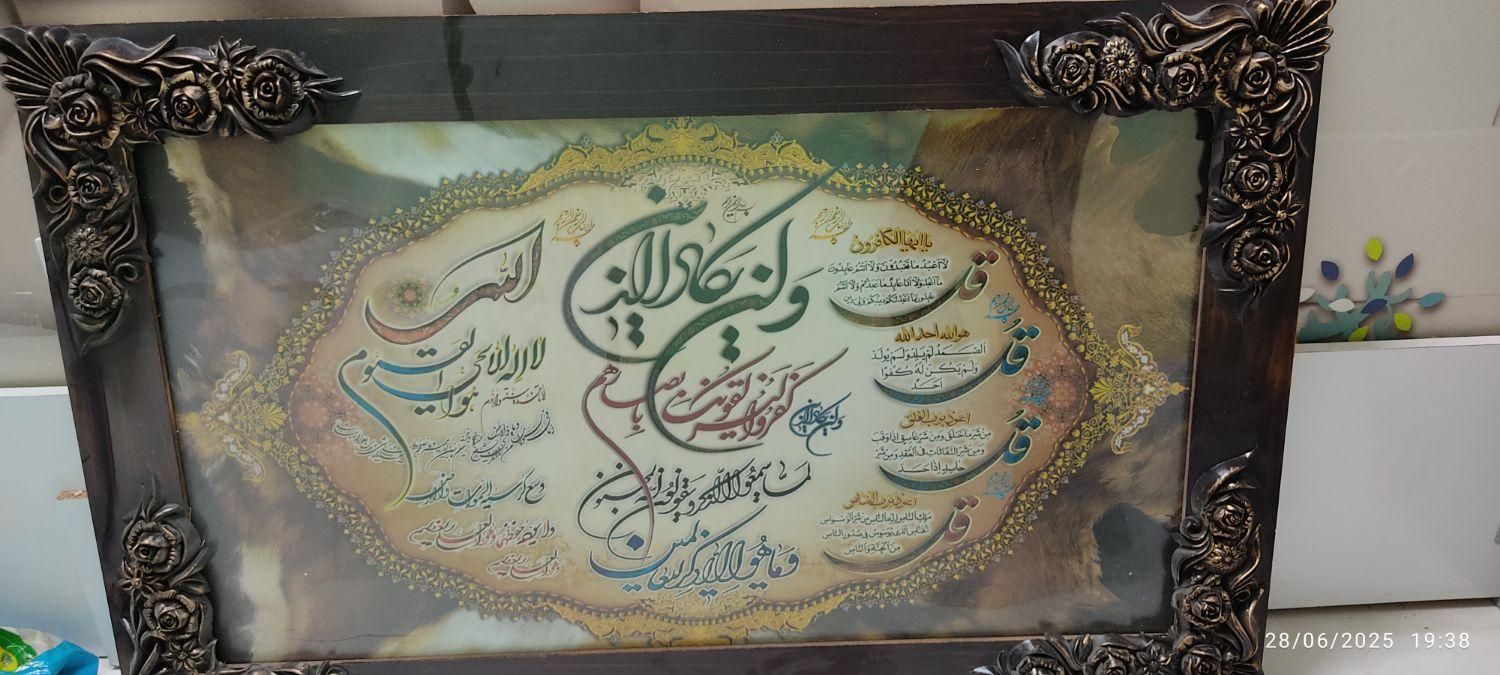 بسم الله الرحمن الرحیم
وان یکاد الذین
کفروا لیزلقونک بابصارهم
لما سمعوا الذکر و یقولون انه لمجنون
و ما هو الا ذکر للعالمین
وان یکاد الذین
قل
یا ایها الکافرون
لا اعبد ما تعبدون ولا انتم عابدون
ما اعبد ولا انا عابد ما عبدتم ولا انتم
عابدون ما اعبد لکم دینکم ولی دین
قل
هو الله احد الله
الصمد لم یلد ولم یولد
ولم یکن له کفوا
احد
قل
اعوذ برب الفلق
من شر ما خلق ومن شر غاسق اذا وقب
ومن شر النفاثات فی العقد ومن شر
حاسد اذا حسد
قل
اعوذ برب الناس
ملک الناس اله الناس من شر الوسواس
الخناس الذی یوسوس فی صدور الناس
من الجنة والناس
الله
لا اله الا هو الحی القیوم
لا تاخذه سنة ولا نوم
وسع کرسیه السموات والارض
ولا یوده حفظهما و هو العلی العظیم
و هو العلی العظیم
28/06/2025 19:38